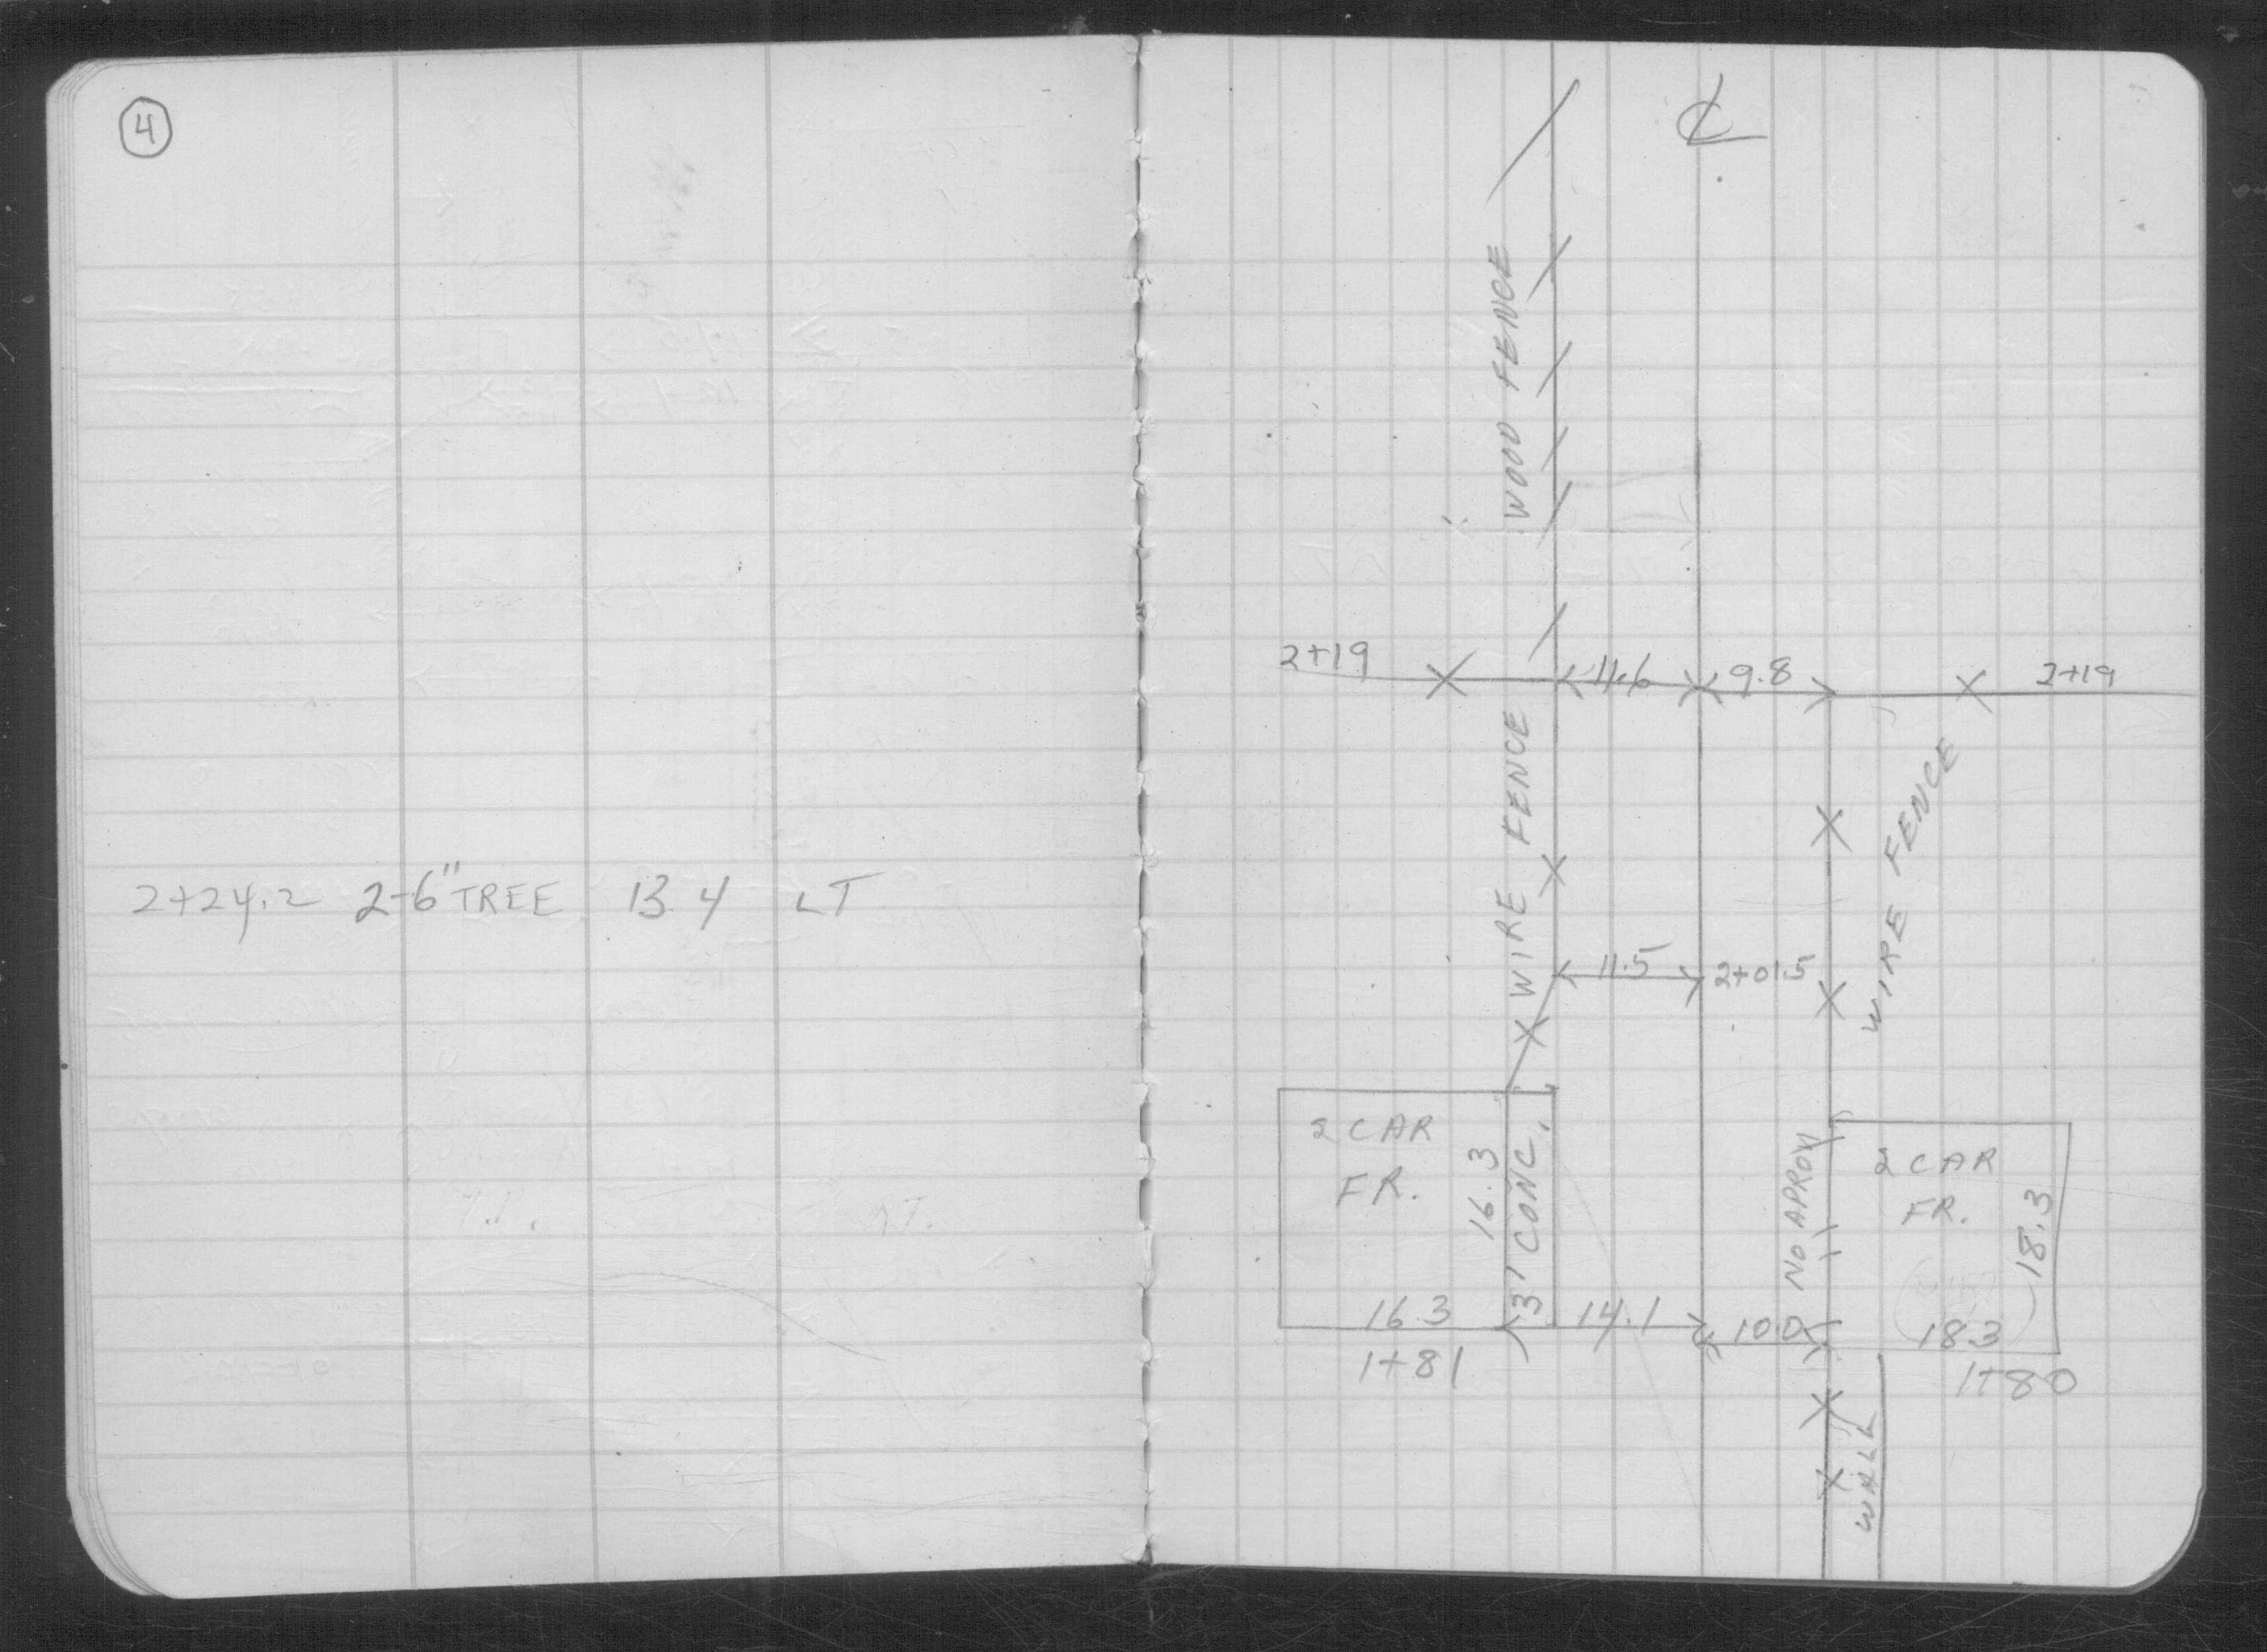 4
2+24.2 2-6" TREE 13.4 LT
℄
WOOD FENCE
2+19 11.6 9.8 2+19
WIRE FENCE
WIRE FENCE
11.5 2+01.5
2 CAR
FR.
16.3
3' CONC.
NO APRON
2 CAR
FR.
18.3
16.3 14.1 10.0 18.3
1+81 1+80
WALL